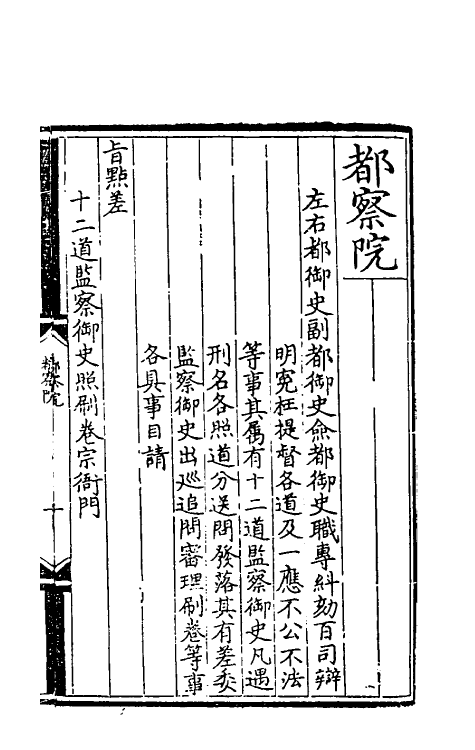 都察院
左右都御史副都御史僉都御史職專糾劾百司辯
明冤枉提督各道及一應不公不法
等事其属有十二道監察御史凡遇
刑名各照道分送問發落其有差委
監察御史出巡追問審理刷卷等事
各具事目請
旨點差
十二道監察御史照刷卷宗衙門
都察院